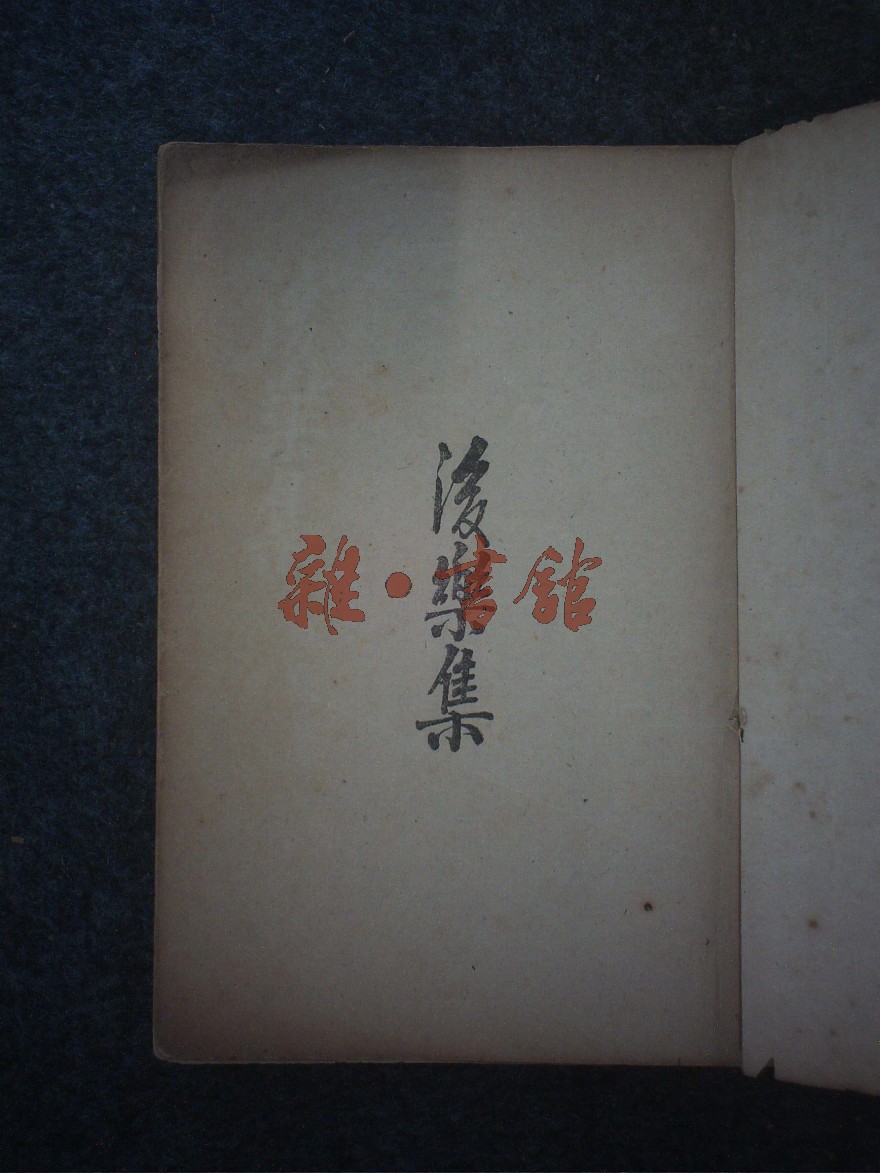 後樂集
雜·書館